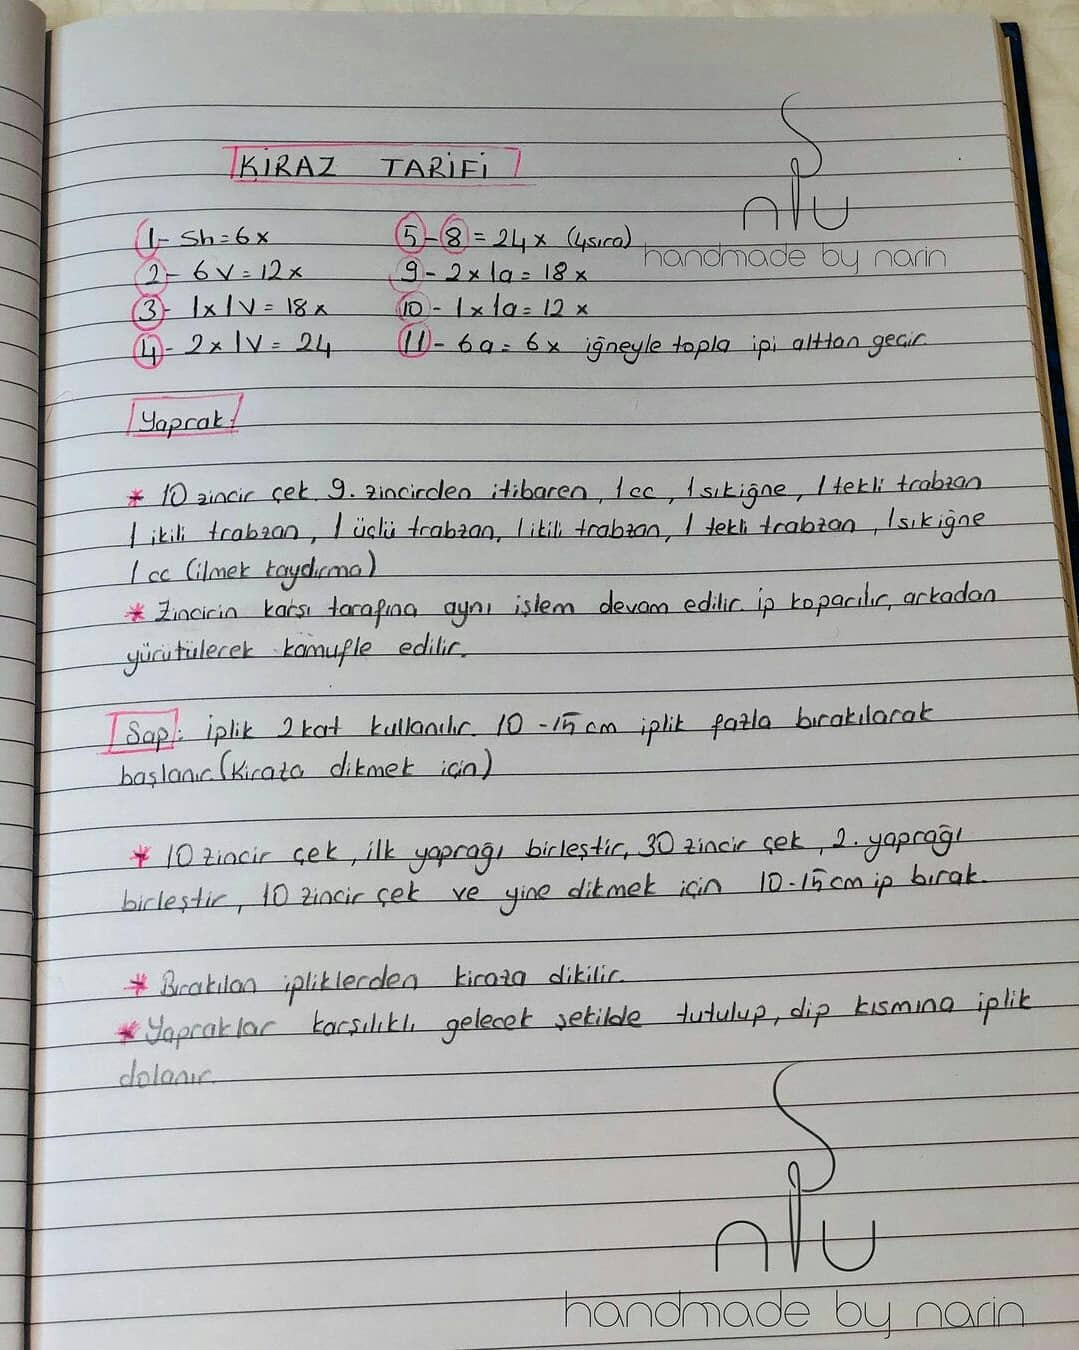 KİRAZ TARİFİ
1- Sh=6x
2- 6V=12x
3- 1x1V=18x
4- 2x1V=24
5-8=24x (4sıra)
9- 2x1a=18x
10- 1x1a=12x
11- 6a=6x iğneyle topla ipi alttan geçir
nlu
handmade by narin
Yaprak:
* 10 zincir çek 9. zincirden itibaren, 1cc, 1sıkiğne, 1tekli trabzan
1 ikili trabzan, 1 üçlü trabzan, 1ikili trabzan, 1 tekli trabzan, 1sıkiğne
1cc (ilmek kaydırma)
* Zincirin karşı tarafına aynı işlem devam edilir. ip koparılır, arkadan
yürütülerek kamufle edilir.
Sap: iplik 2kat kullanılır. 10-15cm iplik fazla bırakılarak
başlanır(kiraza dikmek için)
* 10 zincir çek, ilk yaprağı birleştir, 30 zincir çek, 2. yaprağı
birleştir, 10 zincir çek ve yine dikmek için 10-15cm ip bırak.
* Bırakılan ipliklerden kiraza dikilir.
* Yapraklar karşılıklı gelecek şekilde tutulup, dip kısmına iplik
dolanır.
nlu
handmade by narin